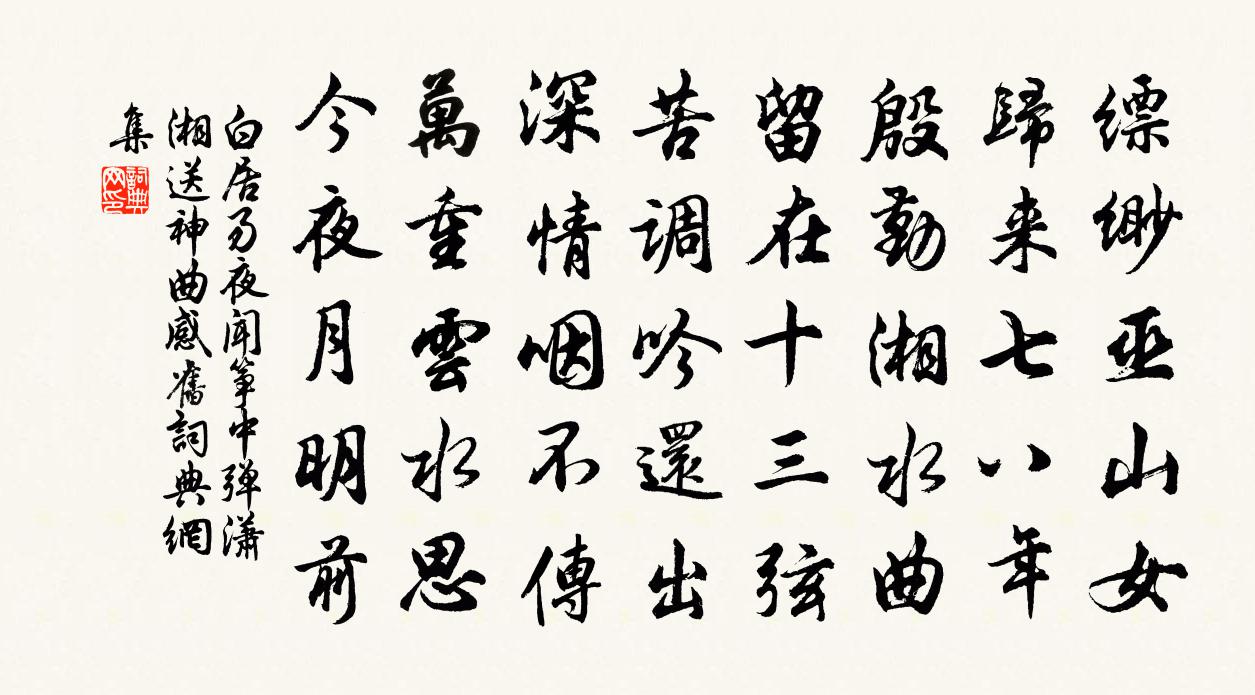 缥缈巫山女
歸来七八年
殷勤湘水曲
留在十三弦
苦調吟還出
深情咽不傳
萬重雲水思
今夜月明前
白居易夜闻筝中弹瀟
湘送神曲感舊詞典網
集
詞典网印